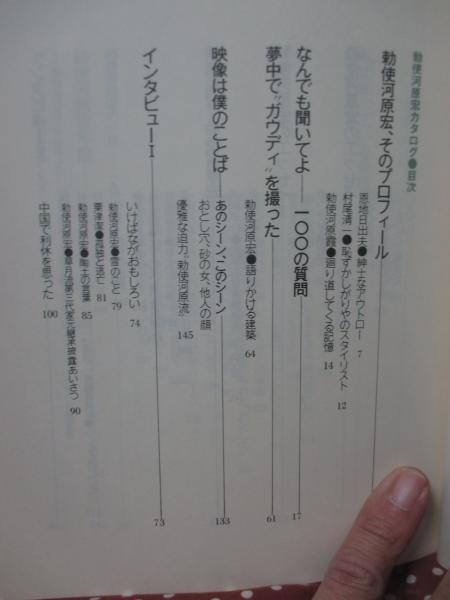 勅使河原宏カタログ●目次
勅使河原宏、そのプロフィール
恩地日出夫●紳士なアウトロー 7
村尾清一●恥ずかしがりやのスタイリスト 12
勅使河原霞●廻り道してくる記憶 14
なんでも聞いてよ――一〇〇の質問 17
夢中で〝ガウディ〟を撮った 61
勅使河原宏●語りかける建築 64
映像は僕のことば――あのシーン、このシーン 133
おとし穴、砂の女、他人の顔
優雅な迫力〝勅使河原流〟 145
インタビューⅠ 73
いけばながおもしろい 74
勅使河原宏●雪のこと 79
粟津潔●孤独と逃亡 81
勅使河原宏●陶土の言葉 85
勅使河原宏●草月流第三代家元継承披露あいさつ 90
中国で利休を思った 100